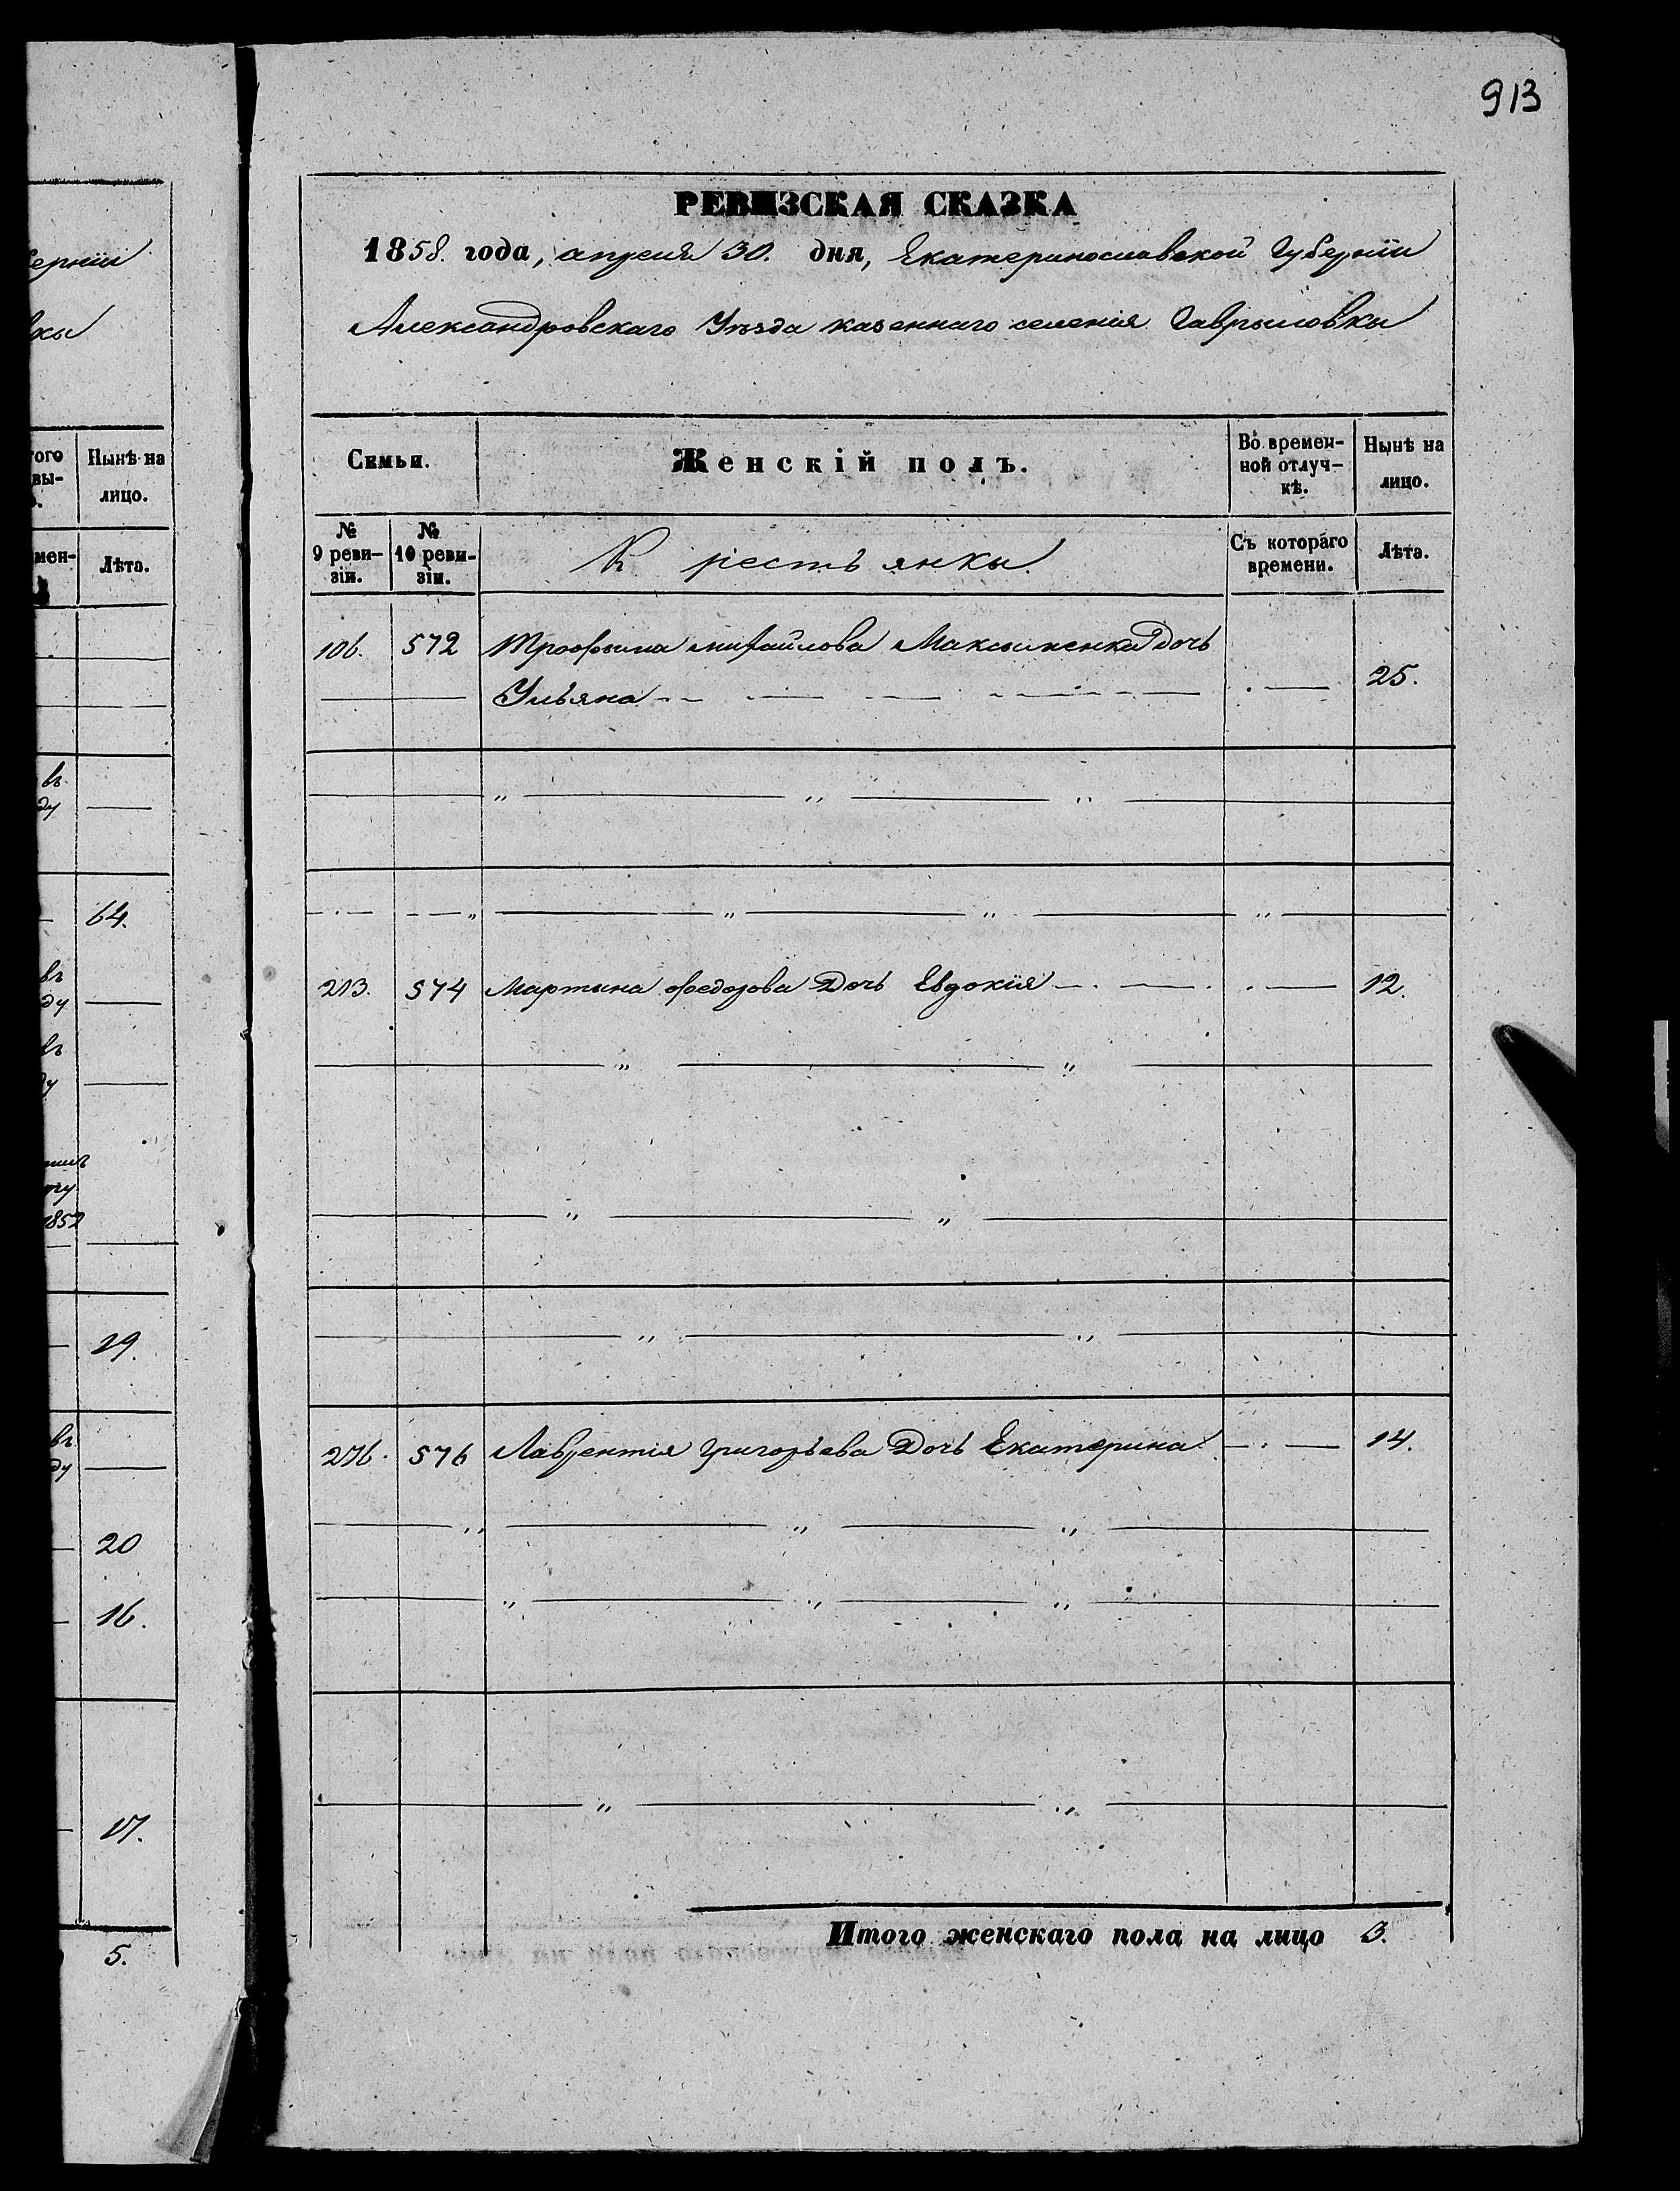 913
ерніи
ки
того
вы-
Нынѣ на
лицо.
мен-
Лѣта.
въ
ду
64.
въ
ду
въ
ду
ту
1852
29.
въ
ду
20
16.
17.
5.
РЕВИЗСКАЯ СКАЗКА
1858. года, апреля 30. дня, Екатеринославской Губерніи
Александровскаго Уѣзда казеннаго селенія Гаврыловки
Семьи.
Женскій полъ.
Во времен-
ной отлуч-
кѣ.
Нынѣ на
лицо.
№
9 реви-
зіи.
№
10 реви-
зіи.
Крестьянки.
Съ котораго
времени.
Лѣта.
106. 572 Трофыма михайлова Максименка Дочь
Ульяна 25.
213. 574 Мартына федорова Дочь Евдокія 12.
276. 576 Лаврентія григорьева Дочь Екатерина 14.
Итого женскаго пола на лицо 3.